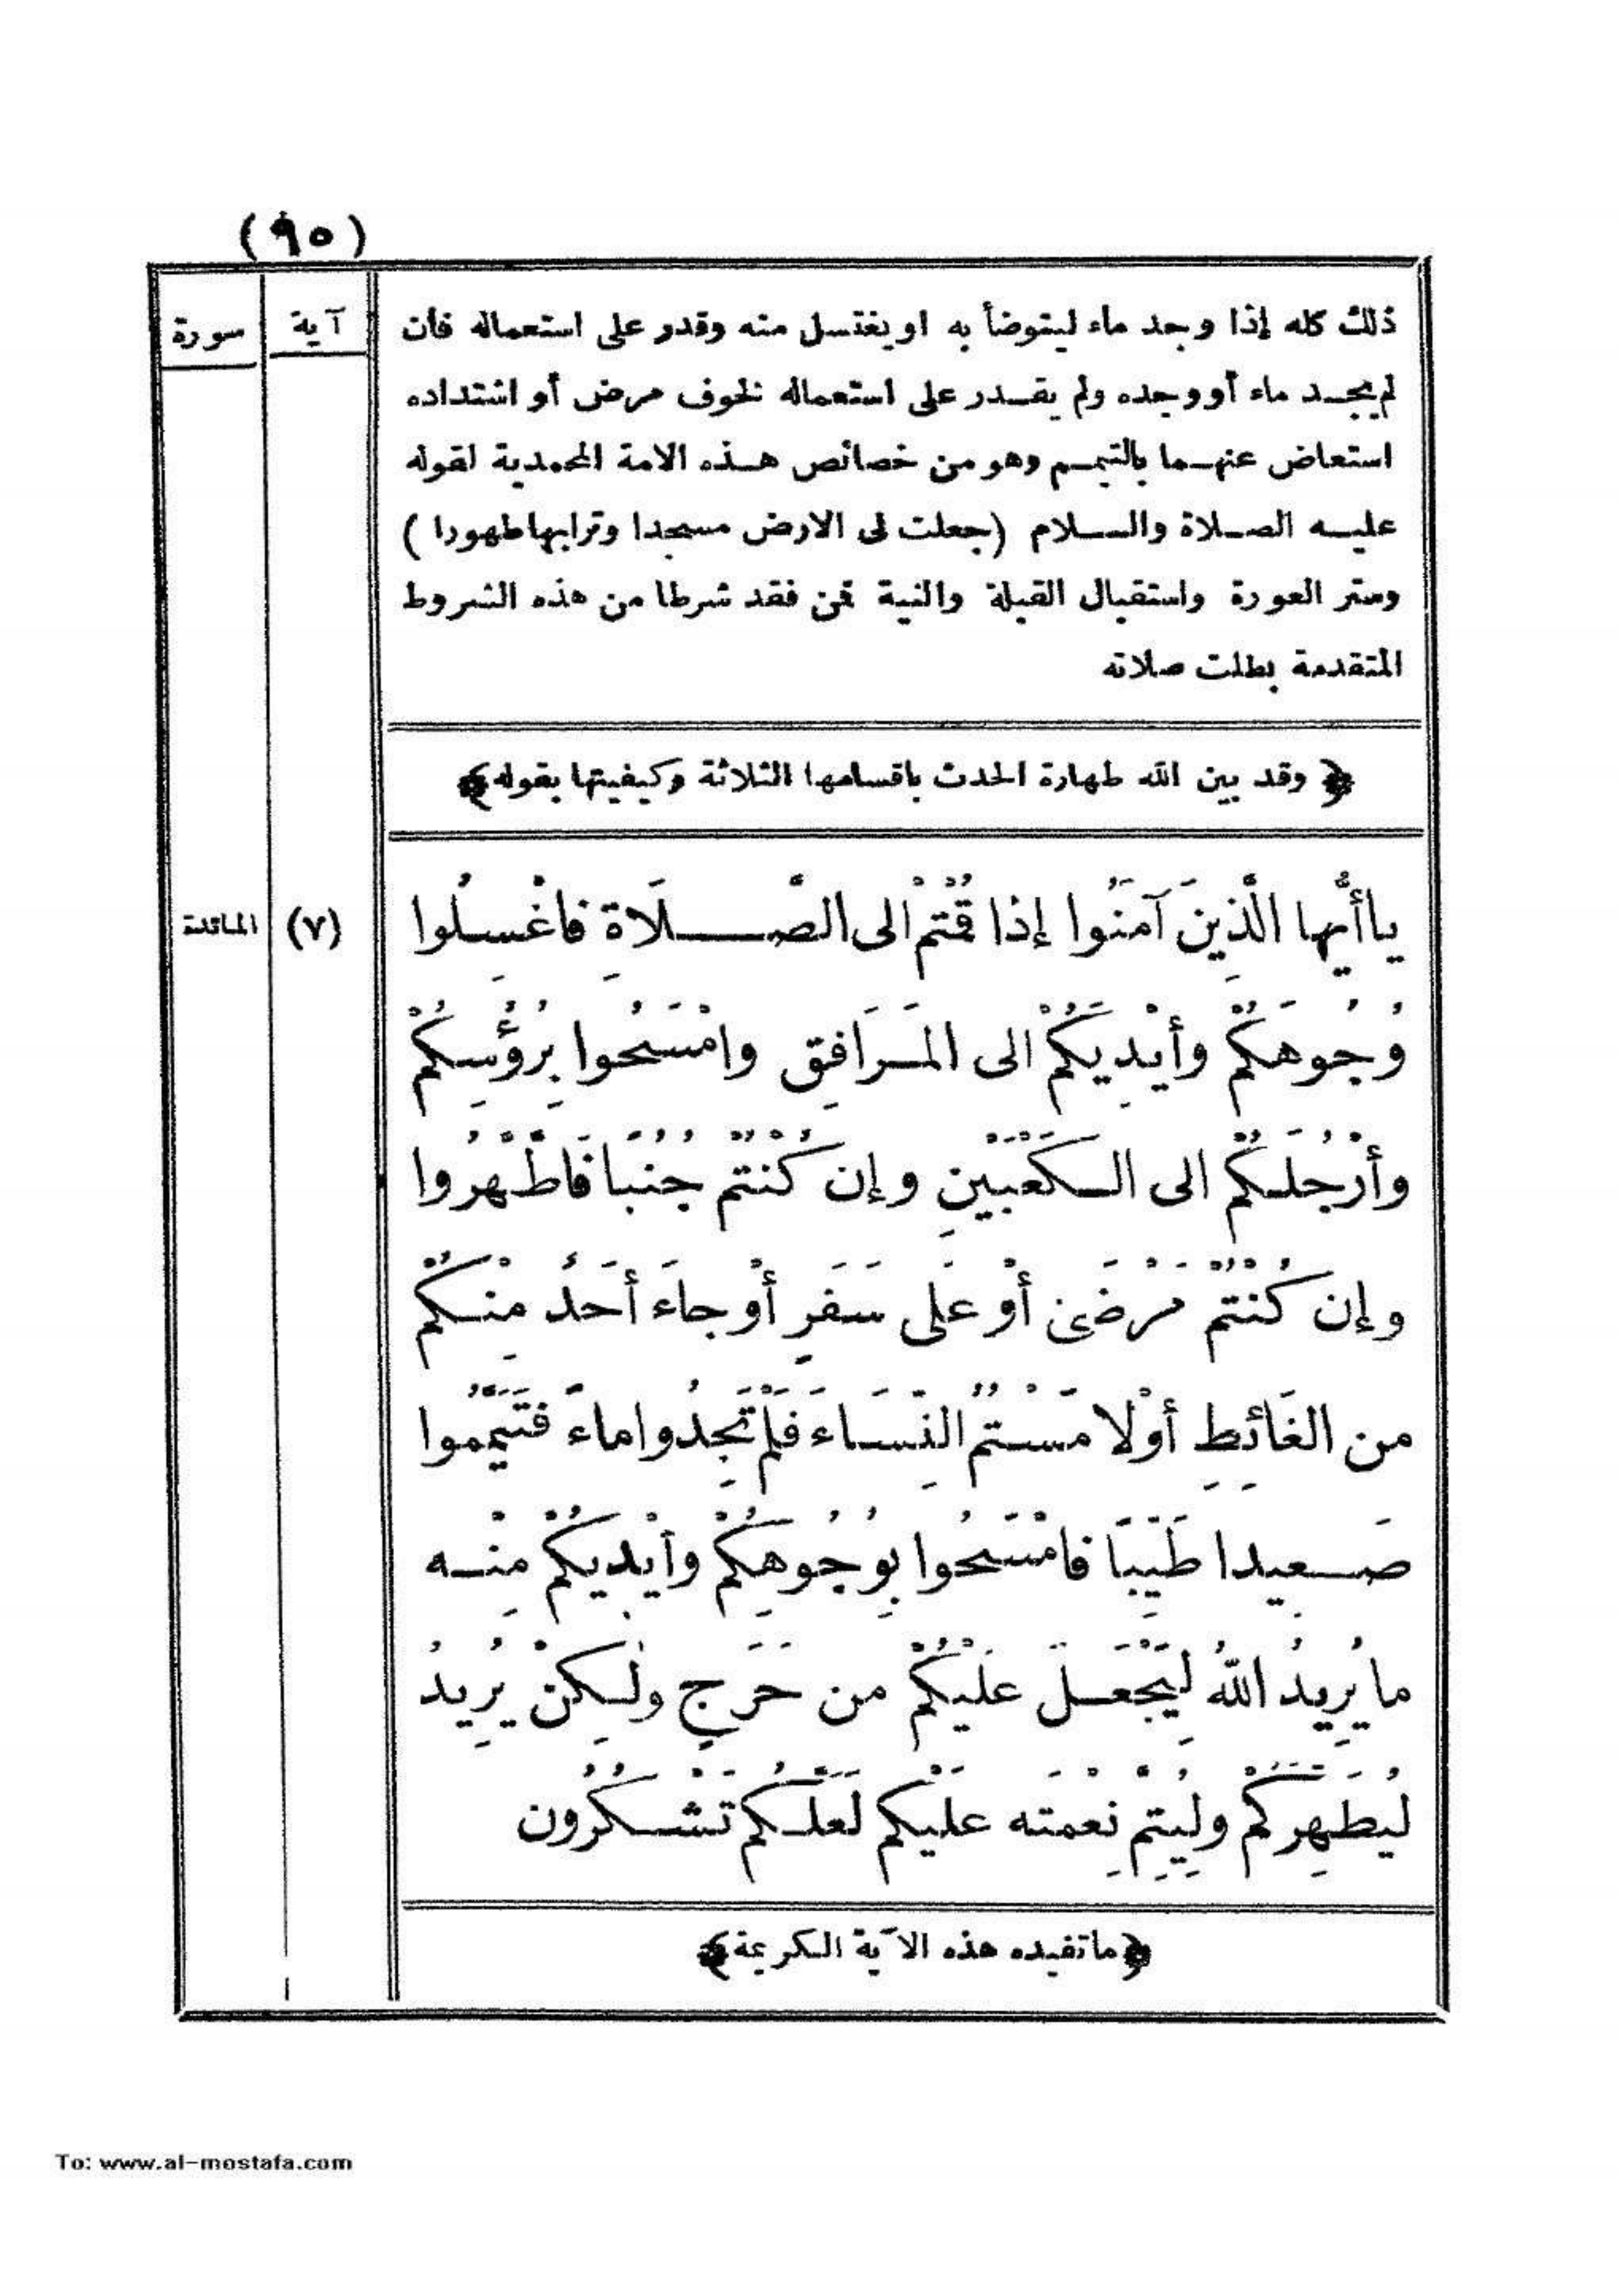 (٩٥)
سورة
آية
ذلك كله إذا وجد ماء ليتوضأ به او يغتسل منه وقدر على استعماله فان
لم يجد ماء أو وجده ولم يقدر على استعماله لخوف مرض أو اشتداده
استعاض عنهما بالتيمم وهو من خصائص هذه الامة المحمدية لقوله
عليه الصلاة والسلام (جعلت لى الارض مسجدا وترابها طهورا)
وستر العورة واستقبال القبلة والنية فمن فقد شرطا من هذه الشروط
المتقدمة بطلت صلاته
﴿وقد بين الله طهارة الحدث باقسامها الثلاثة وكيفيتها بقوله﴾
المائدة
(٧)
ياأَيُّها الَّذِينَ آمَنُوا إذا قُمْتُمْ الى الصَّلَاةِ فاغْسِلُوا
وُجُوهَكُمْ وأَيْدِيَكُمْ الى المَرَافِقِ وامْسَحُوا بِرُؤُسِكُمْ
وأَرْجُلَكُمْ الى الكَعْبَيْنِ وإن كُنْتُمْ جُنُبًا فَاطَّهَّرُوا
وإن كُنْتُمْ مَرْضَى أَوْ على سَفَرٍ أَوْ جاءَ أَحَدٌ مِنْكُمْ
من الغَائِطِ أَوْ لَامَسْتُمُ النِّسَاءَ فَلَمْ تَجِدُوا ماءً فَتَيَمَّمُوا
صَعِيدا طَيِّبًا فامْسَحُوا بِوُجُوهِكُمْ وأَيْدِيكُمْ مِنْه
ما يُرِيدُ اللهُ لِيَجْعَلَ عَلَيْكُمْ من حَرَجٍ ولٰكِنْ يُرِيدُ
لِيُطَهِّرَكُمْ ولِيُتِمَّ نِعْمَتَه عَلَيْكم لَعَلَّكُم تَشْكُرُون
﴿ما تفيده هذه الآية الكريمة﴾
To: www.al-mostafa.com